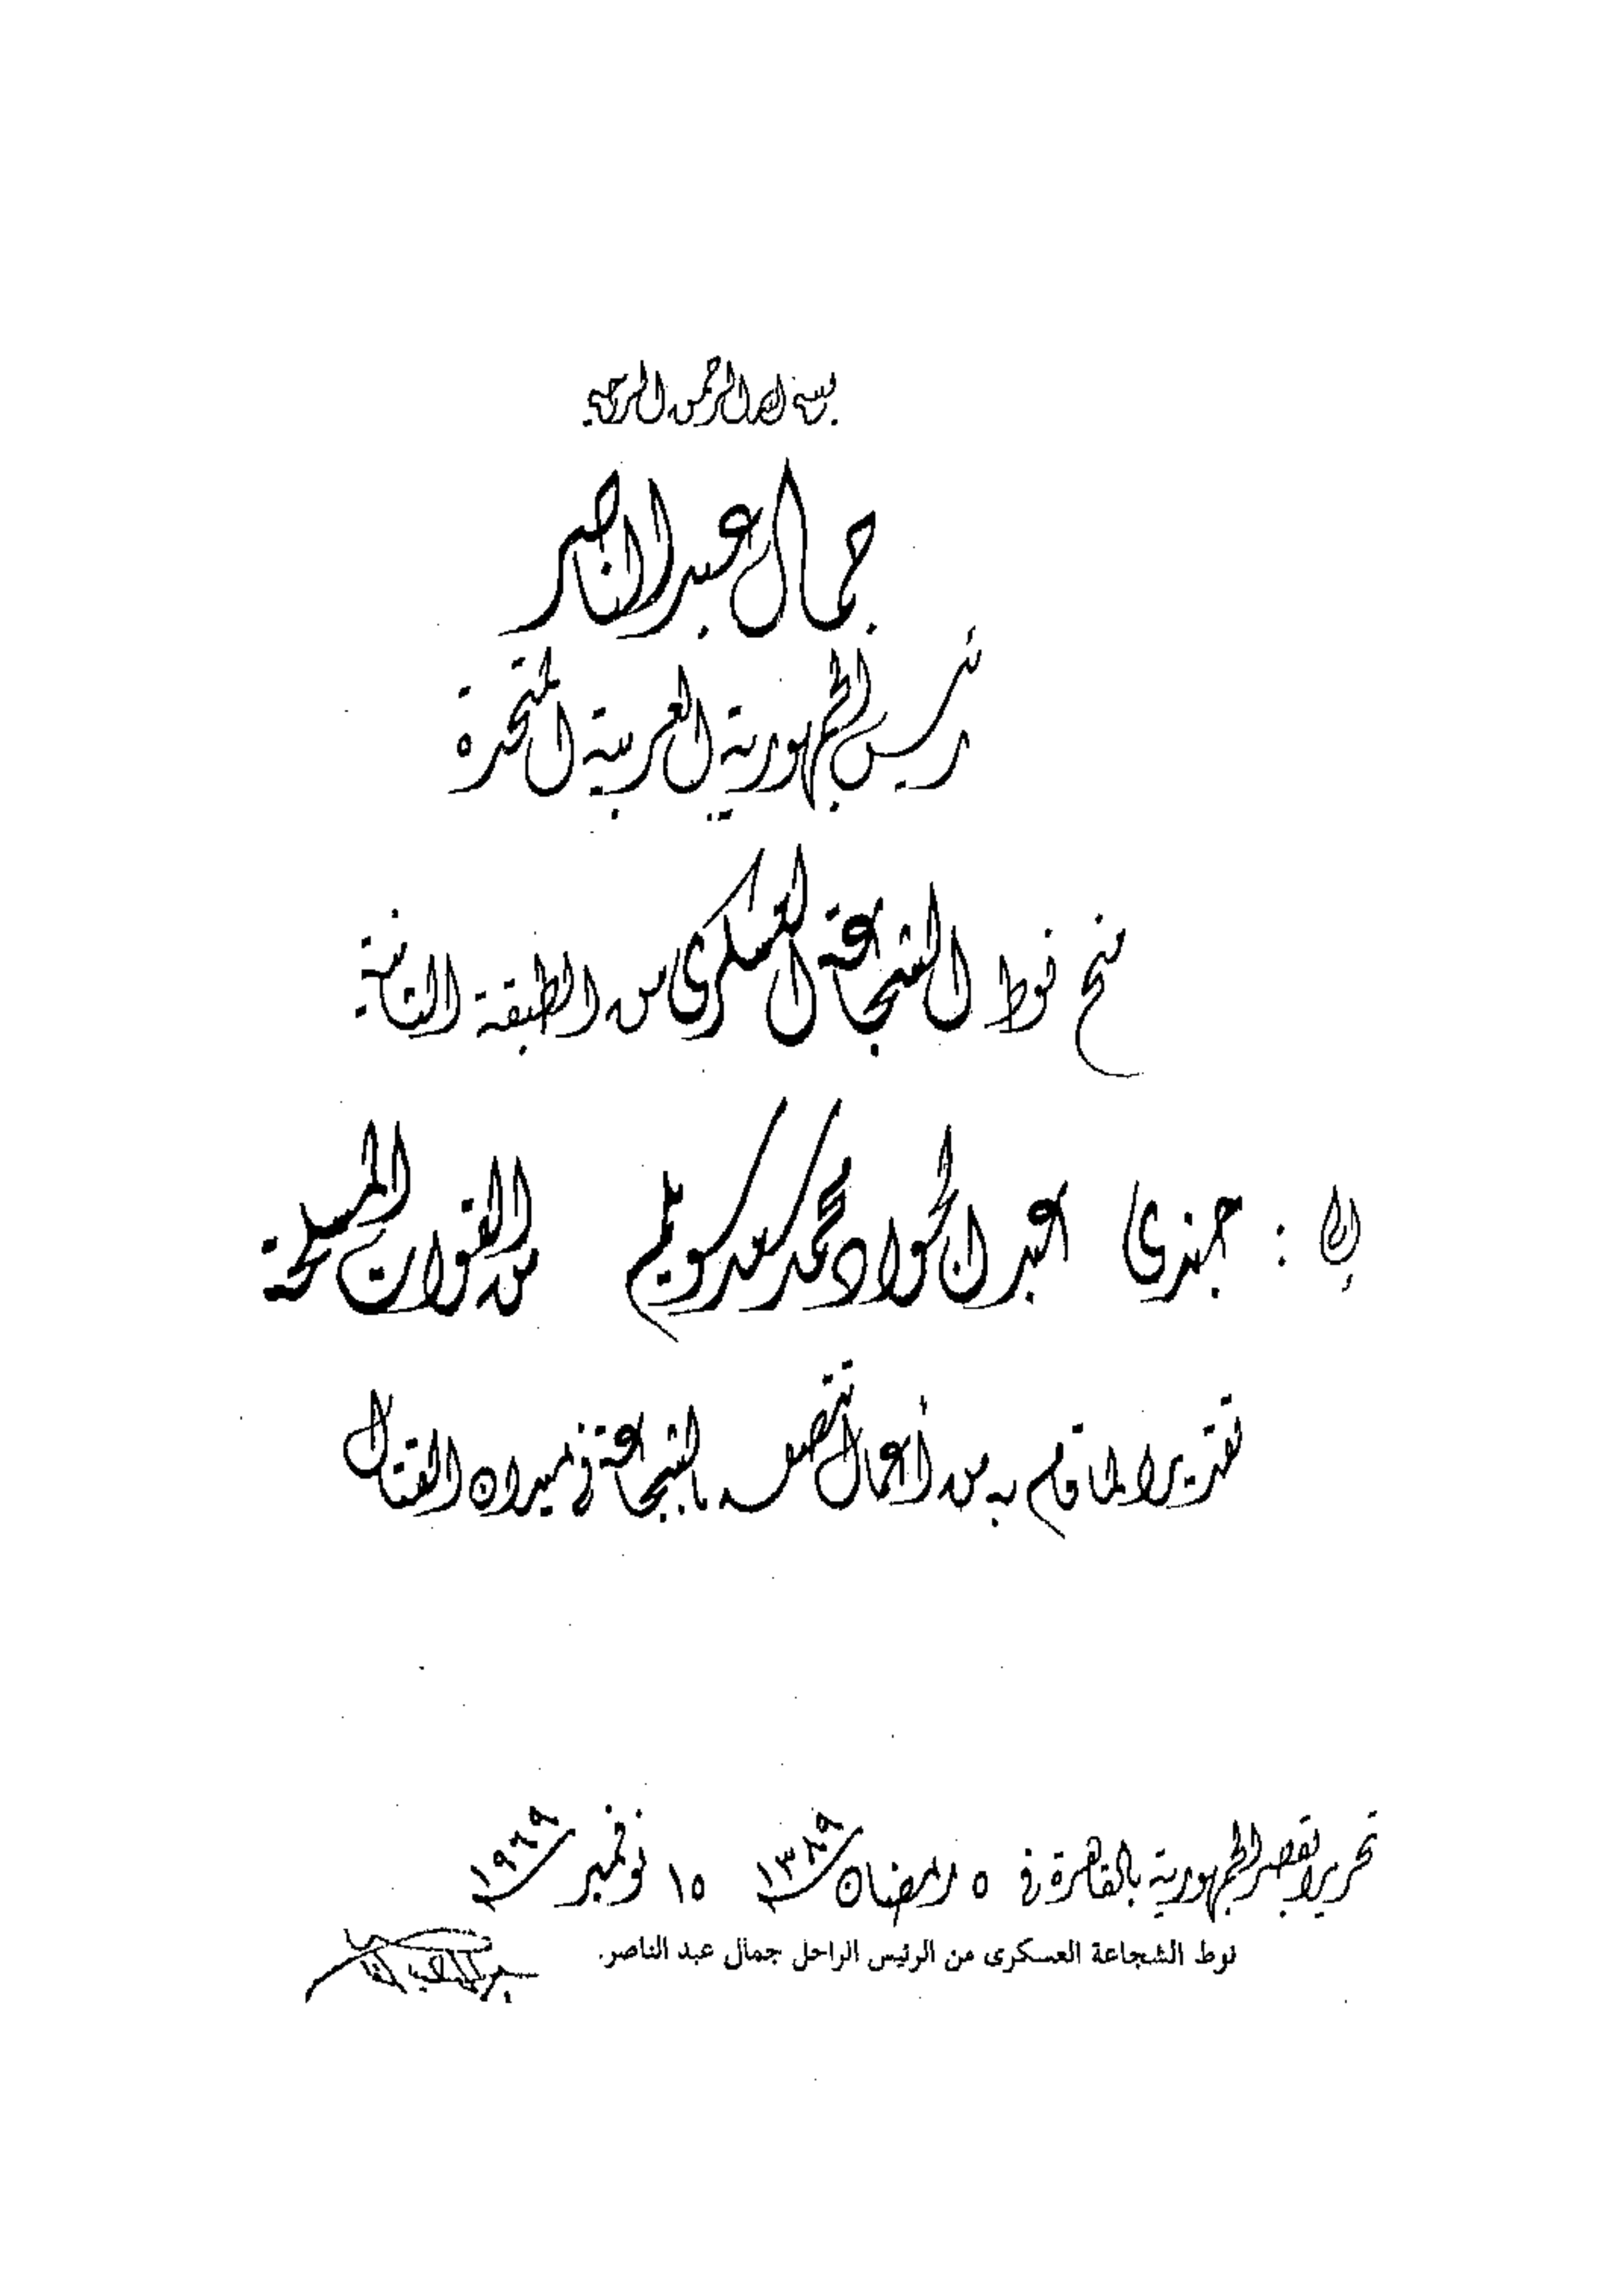 بسم الله الرحمن الرحيم
جمال عبد الناصر
رئيس الجمهورية العربية المتحدة
منح نوط الشجاعة العسكرى من الطبقة الثانية
إلى : جندى عبد الجواد محمد سعد سويلم من القوات المسلحة
تقديرا لما قام به من أعمال تتصف بالشجاعة فى ميدان القتال
تحريرا بقصر الجمهورية بالقاهرة فى ٥ رمضان ١٣٨٩ ١٥ نوفمبر ١٩٦٩
نوط الشجاعة العسكرى من الرئيس الراحل جمال عبد الناصر.